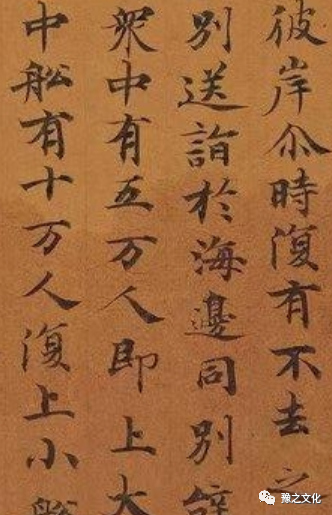 彼岸尒時復有不去之
別送詣於海邊同別辞
衆中有五万人即上大
中舩有十万人復上小舩
豫之文化